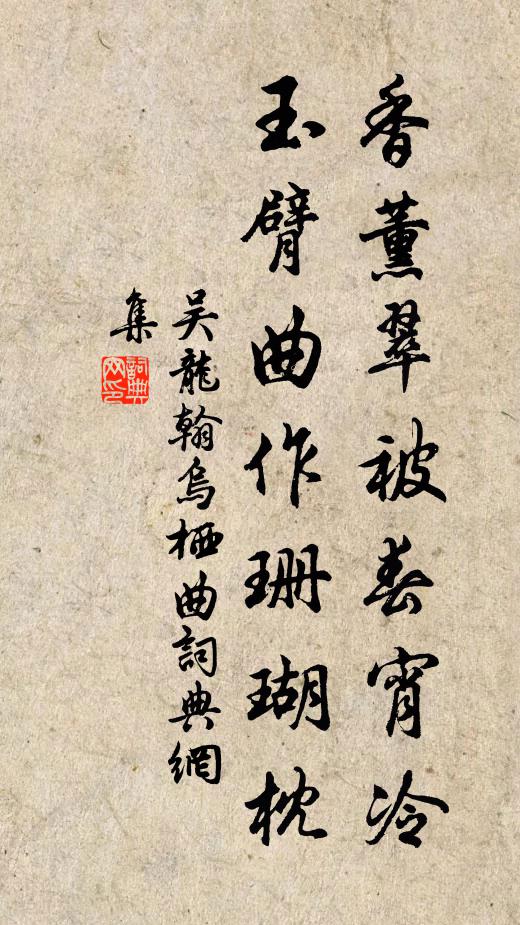 香薰翠被春宵冷
玉臂曲作珊瑚枕
吴龍翰烏栖曲詞典網
集
詞典
网印